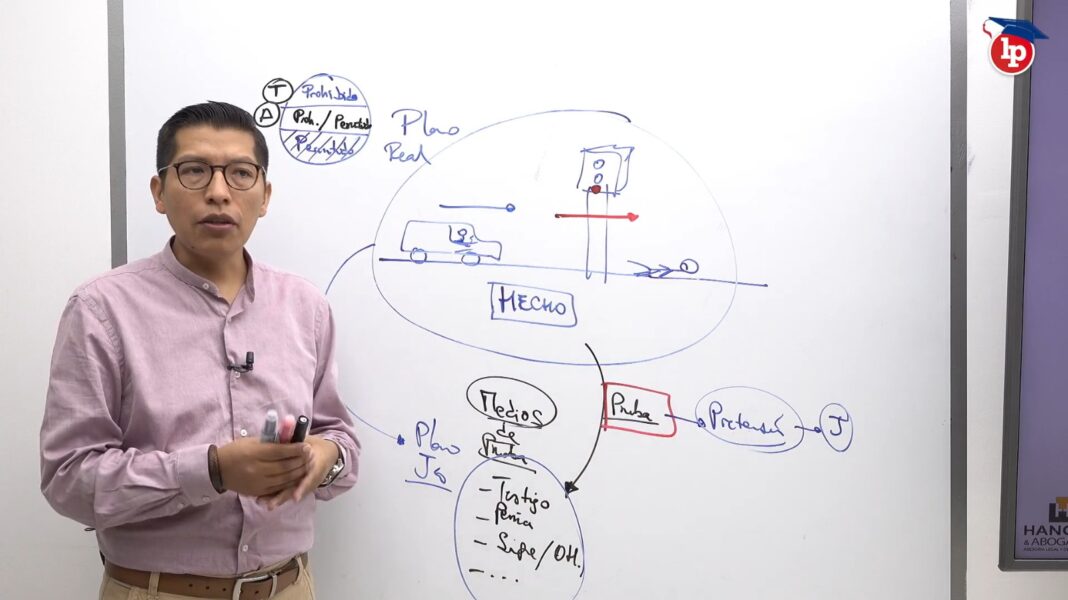 lp
T
Prohibido
D
Proh./Permitido
Permitido
Plano
Real
HECHO
Medios
de
Prueba
Prueba
Pretensión
J
Plano
- Testigo
- Pericia
- ...
HANC
& ABOGA